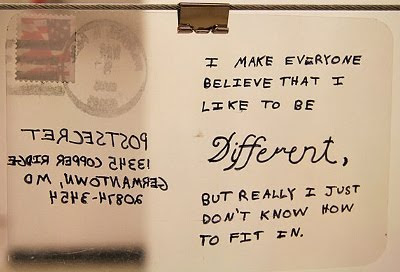 POSTSECRET
13345 COPPER RIDGE
GERMANTOWN, MD
20874-3454
I MAKE EVERYONE
BELIEVE THAT I
LIKE TO BE
Different,
BUT REALLY I JUST
DON'T KNOW HOW
TO FIT IN.